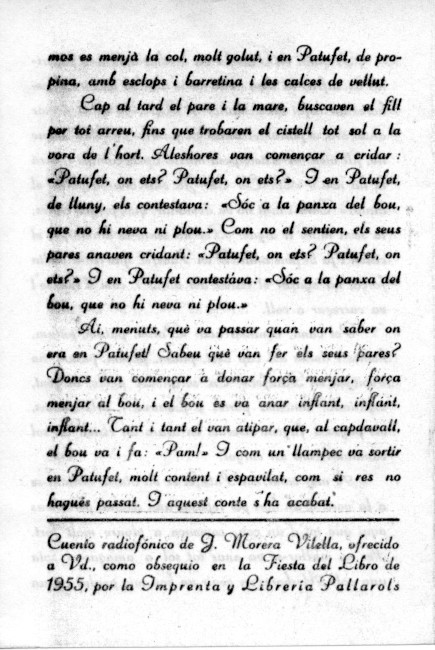 mos es menjà la col, molt golut, i en Patufet, de pro-
pina, amb esclops i barretina i les calces de vellut.
Cap al tard el pare i la mare, buscaven el fill
per tot arreu, fins que trobaren el cistell tot sol a la
vora de l'hort. Aleshores van començar a cridar:
«Patufet, on ets? Patufet, on ets?» I en Patufet,
de lluny, els contestava: «Sóc a la panxa del bou,
que no hi neva ni plou.» Com no el sentien, els seus
pares anaven cridant: «Patufet, on ets? Patufet, on
ets?» I en Patufet contestava: «Sóc a la panxa del
bou, que no hi neva ni plou.»
Ai, menuts, què va passar quan van saber on
era en Patufet! Sabeu què van fer els seus pares?
Doncs van començar a donar força menjar, força
menjar al bou, i el bou es va anar inflant, inflant,
inflant... Tant i tant el van atipar, que, al capdavall,
el bou va i fa: «Pam!» I com un llampec va sortir
en Patufet, molt content i espavilat, com si res no
hagués passat. I aquest conte s'ha acabat.
Cuento radiofónico de J. Morera Vilella, ofrecido
a Vd., como obsequio en la Fiesta del Libro de
1955, por la Imprenta y Librería Pallarols